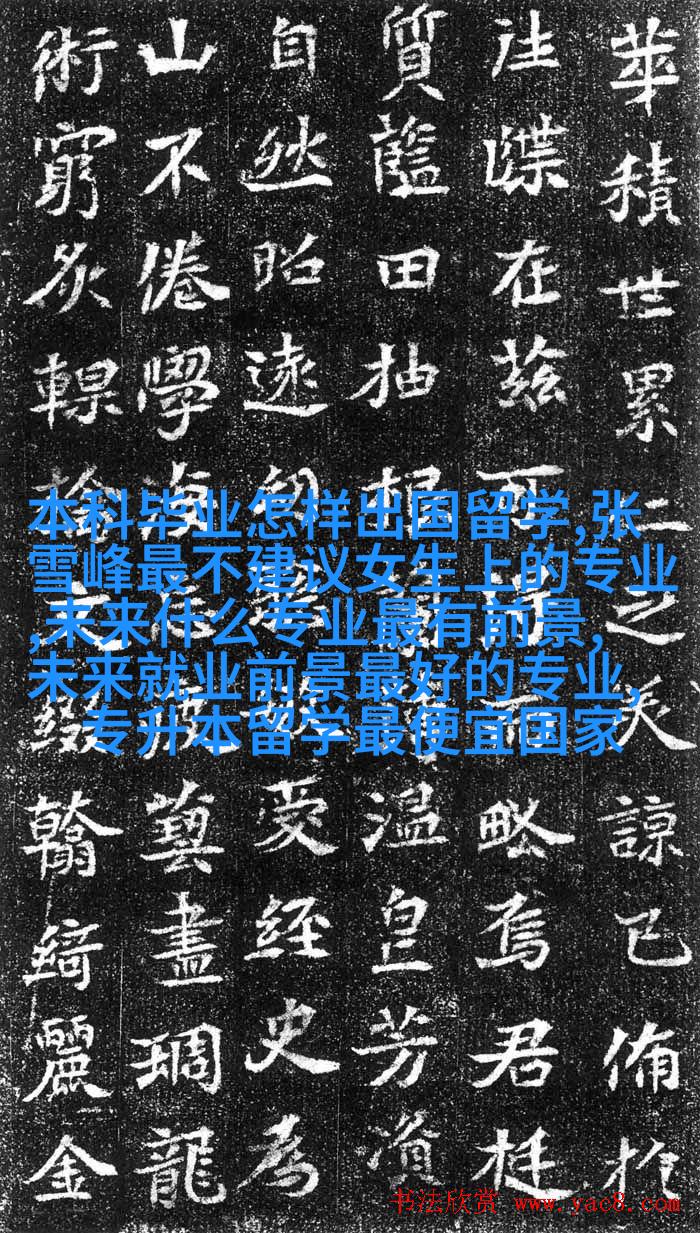 華積世累之諒已備於
牒在茲可而略焉君挺
質藍田抽溫芳
自然昭遠受經史為
山不倦學藝盡琱龍
術窮炙輠翰綺麗金
本科毕业怎样出国留学,张
雪峰最不建议女生上的专业
,未来什么专业最有前景,
未来就业前景最好的专业,
专升本留学最便宜国家
书法欣赏 www.yac8.com